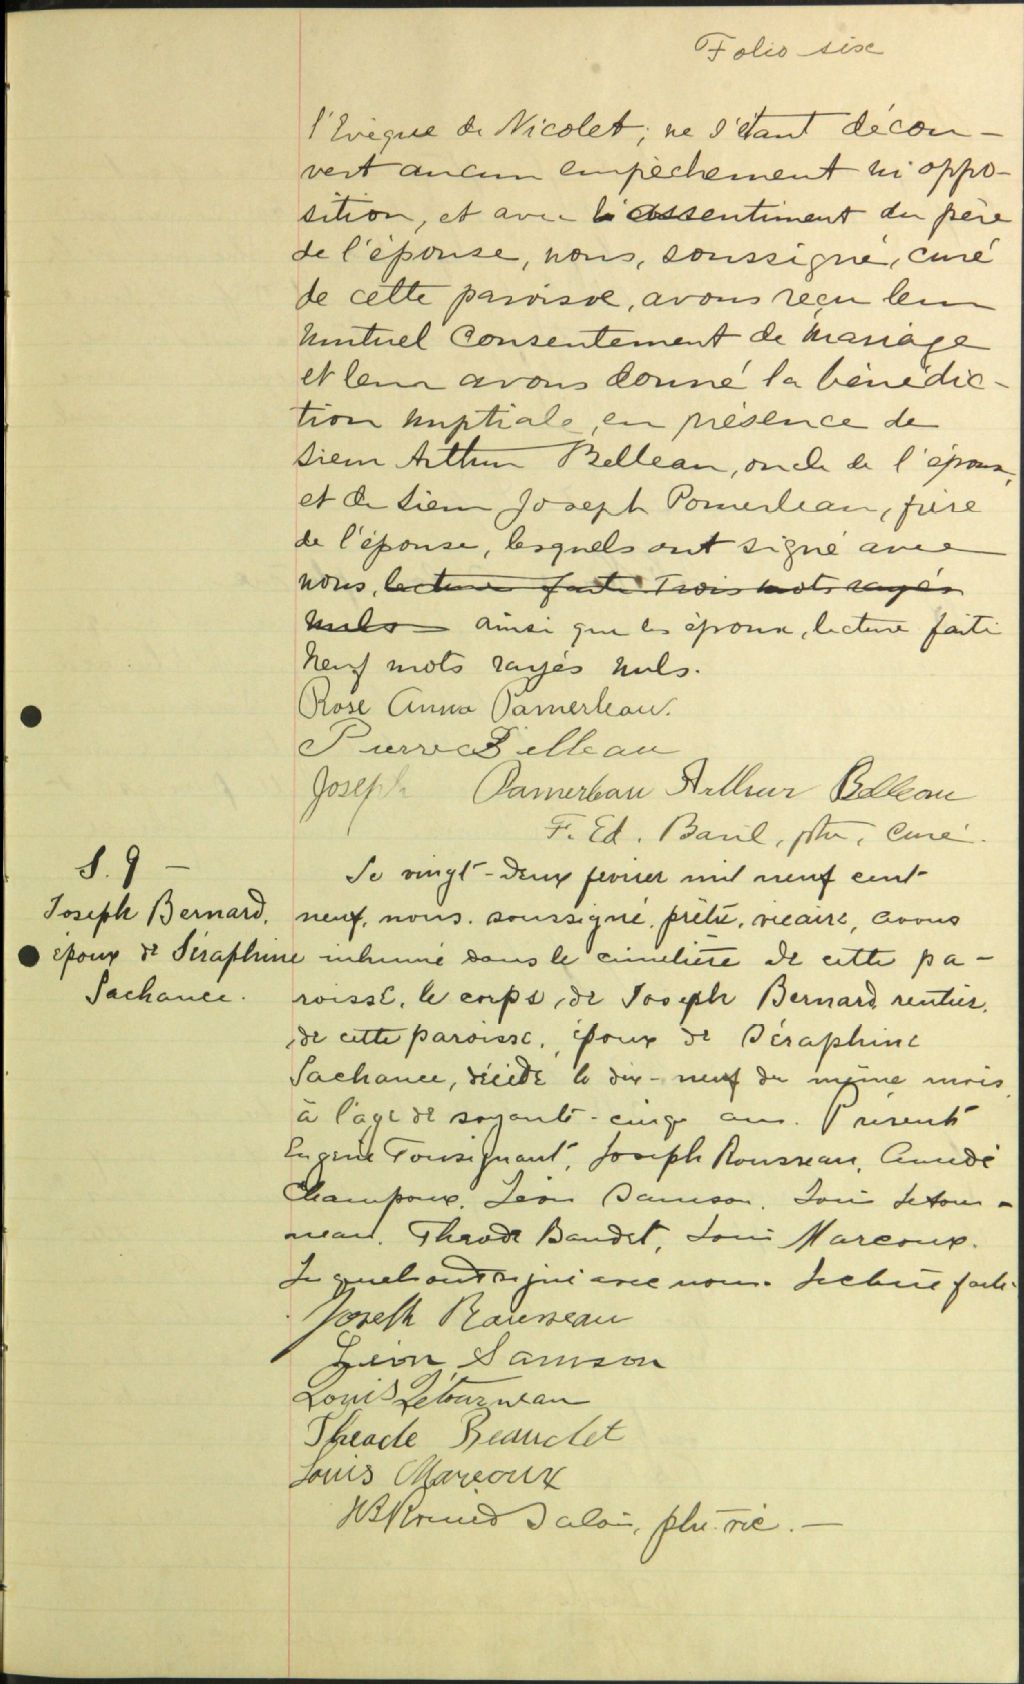 Folio six
l'Evêque de Nicolet; ne s'étant décou-
vert aucun empêchement ni oppo-
sition, et avec l'assentiment du père
de l'épouse, nous, soussigné, curé
de cette paroisse, avons reçu leur
mutuel consentement de mariage
et leur avons donné la bénédic-
tion nuptiale, en présence de
sieur Arthur Belleau, oncle de l'époux,
et de sieur Joseph Pomerleau, frère
de l'épouse, lesquels ont signé avec
nous, lecture faite. Trois mots rayés
nuls ainsi que les époux, lecture faite
Neuf mots rayés nuls.
Rose Anna Pamerleau.
Pierre Belleau
Joseph Pamerleau Arthur Belleau
F. Ed. Baril, ptre, curé.
S. 9 —
Joseph Bernard.
époux de Séraphine
Lachance.
Le vingt-deux février mil neuf cent
neuf, nous. soussigné, prêtre, vicaire, avons
inhumé dans le cimetière de cette pa-
roisse, le corps, de Joseph Bernard, rentier,
de cette paroisse, époux de Séraphine
Lachance, décédé le dix-neuf du même mois,
à l'age de soyante-cinq ans. Présents
Eugène Tousignant, Joseph Rousseau, Amédé
Champoux, Léon Samson, Louis Letour-
neau, Théode Baudet, Louis Marcoux.
Lesquels ont signé avec nous. Lecture faite.
Joseph Rousseau
Léon Samson
Louis Létourneau
Theode Beaudet
Louis Marcoux
ptre vic. —